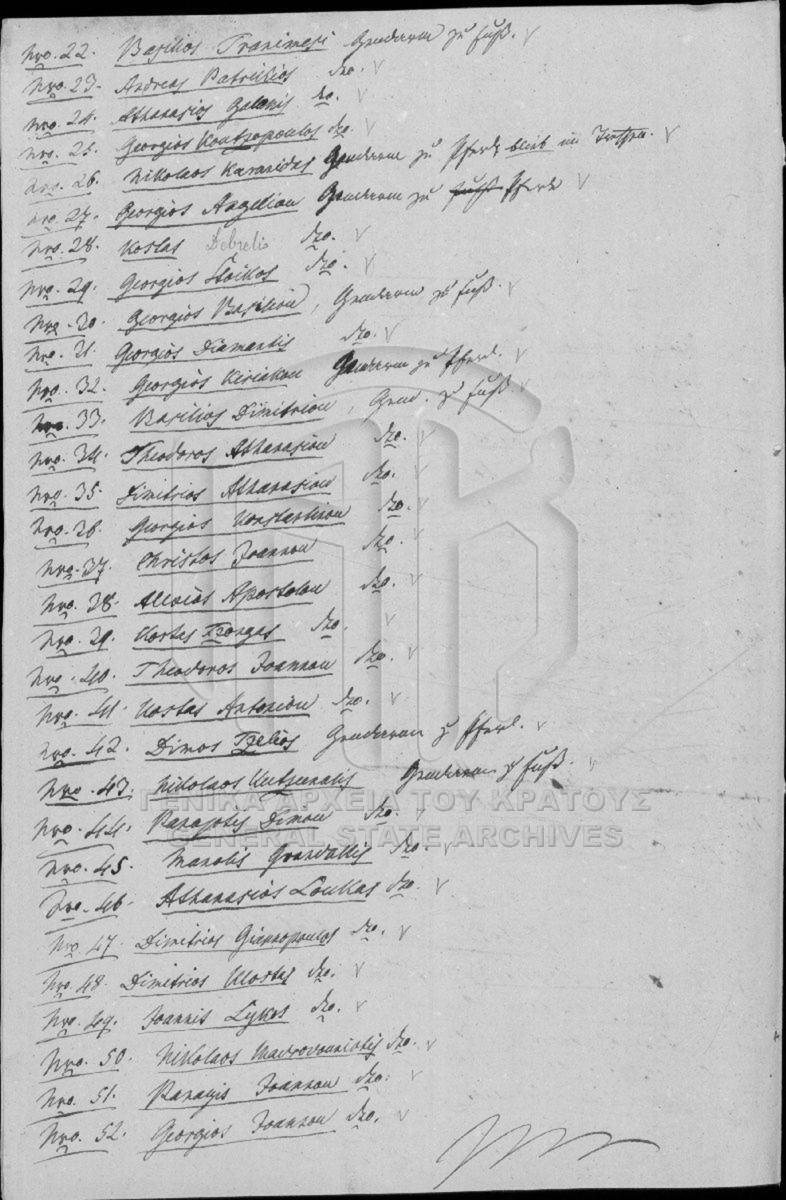 Nro. 22. Basilios Tranimesi Gendarm zu Fuß.
Nro. 23. Andreas Patrikios dto.
Nro. 24. Athanasios Galanis do.
Nro. 25. Georgios Koutzopoulos dto.
Nro. 26. Nikolaos Karanidas Gendarm zu Pferd blieb im Treffen.
Nro. 27. Georgios Angeliou Gendarm zu Fuß Pferde
Nro. 28. Kostas Debrelis dto.
Nro. 29. Georgios Stoikos dto.
Nro. 30. Georgios Basiliou, Gendarm zu Fuß.
Nro. 31. Georgios Diamantis dto.
Nro. 32. Georgios Kiriakou Gendarm zu Pferd.
Nro. 33. Basilios Dimitriou, Gend. zu Fuß.
Nro. 34. Theodoros Athanasiou dto.
Nro. 35. Dimitrios Athanasiou dto.
Nro. 36. Georgios Konstantinou dto.
Nro. 37. Christos Joannou dto.
Nro. 38. Alexios Apostolou dto.
Nro. 39. Kostas Tzongas dto.
Nro. 40. Theodoros Joannou dto.
Nro. 41. Kostas Antoniou dto.
Nro. 42. Dimos Tzelios Gendarm zu Pferd.
Nro. 43. Nikolaos Gendarm zu Fuß.
ΓΕΝΙΚΑ ΑΡΧΕΙΑ ΤΟΥ ΚΡΑΤΟΥΣ
Nro. 44. Panajotis Dimou dto.
GENERAL STATE ARCHIVES
Nro. 45. Manolis dto.
Nro. 46. Athanasios Loukas dto.
Nro. 47. Dimitrios Giannopoulos dto.
Nro. 48. Dimitrios Kostas dto.
Nro. 49. Joannis Lykos dto.
Nro. 50. Nikolaos Mavrovouniotis dto.
Nro. 51. Panagis Joannou dto.
Nro. 52. Georgios Joannou dto.